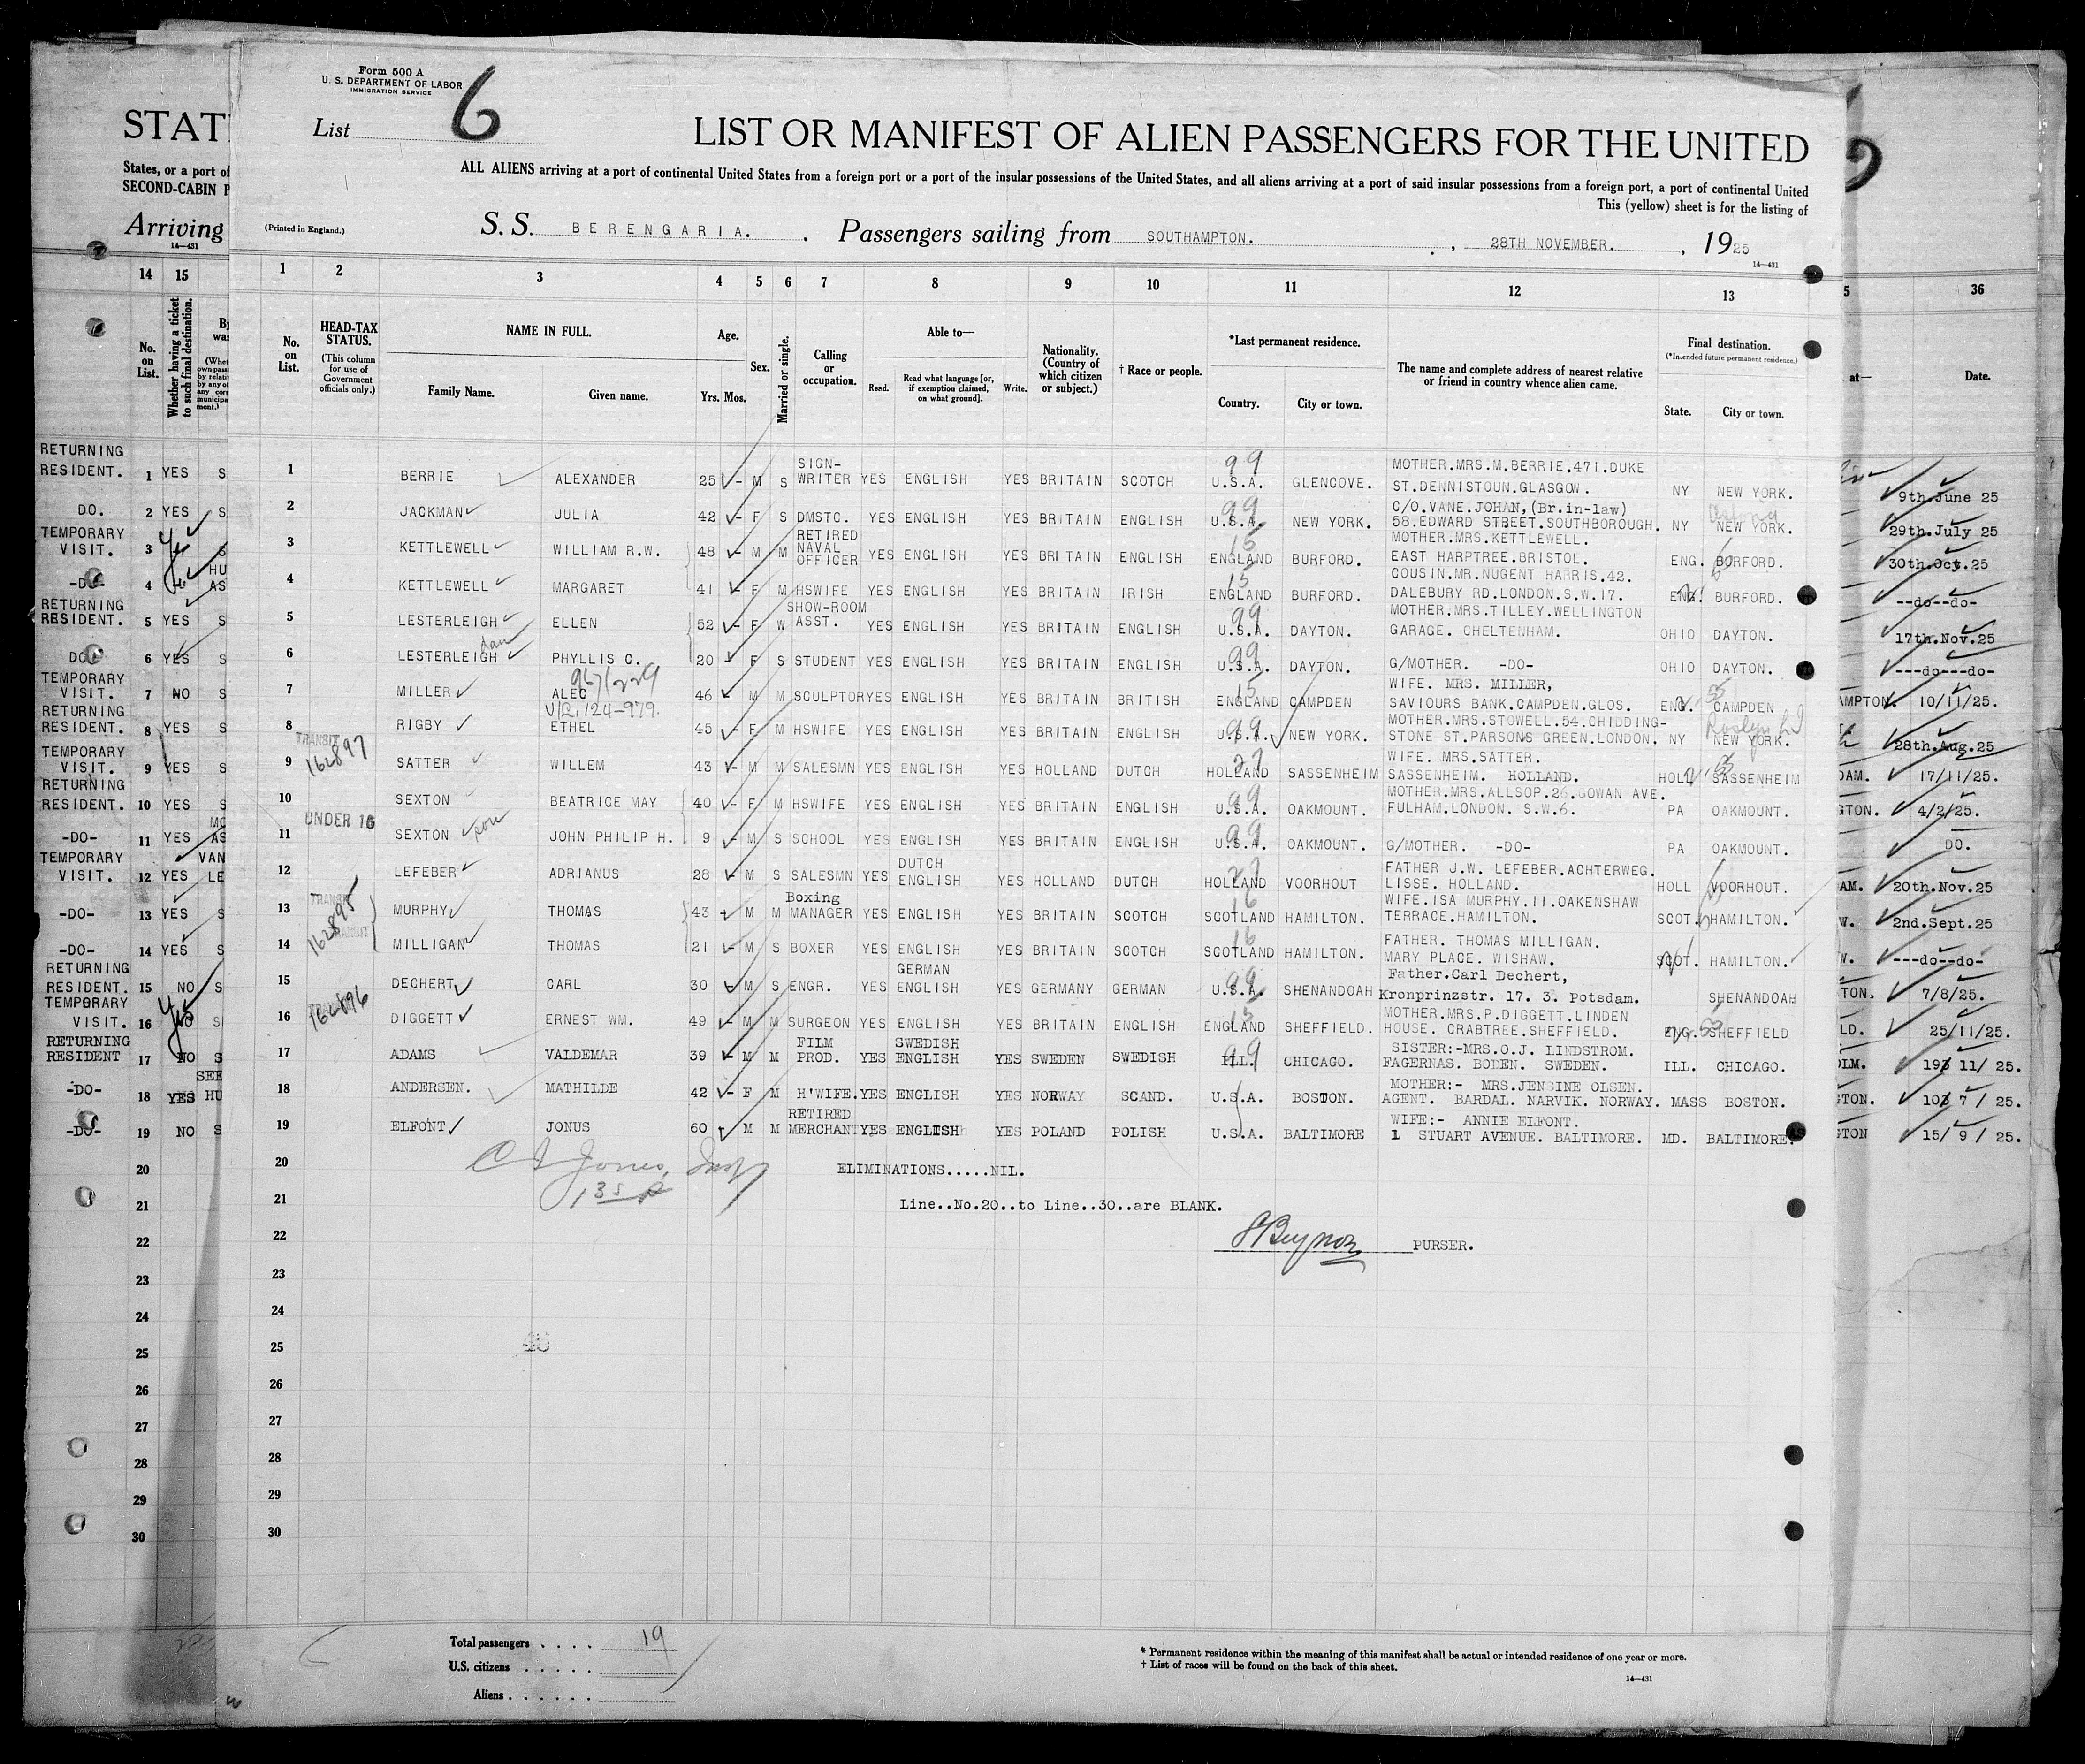 Form 500 A
U. S. DEPARTMENT OF LABOR
IMMIGRATION SERVICE
List 6
LIST OR MANIFEST OF ALIEN PASSENGERS FOR THE UNITED
ALL ALIENS arriving at a port of continental United States from a foreign port or a port of the insular possessions of the United States, and all aliens arriving at a port of said insular possessions from a foreign port, a port of continental United
This (yellow) sheet is for the listing of
(Printed in England.)
S. S. BERENGARIA. Passengers sailing from SOUTHAMPTON. , 28TH NOVEMBER. , 1925
14—431
STAT
States, or a port of
SECOND-CABIN P
Arriving
14—431
14 15
No. on List.
Whether having a ticket to such final destination.
1 2 3 4 5 6 7 8 9 10 11 12 13
36
No. on List.
HEAD-TAX STATUS.
(This column for use of Government officials only.)
NAME IN FULL.
Family Name. Given name.
Age.
Yrs. Mos.
Sex.
Married or single.
Calling or occupation.
Able to—
Read. Read what language [or, if exemption claimed, on what ground]. Write.
Nationality. (Country of which citizen or subject.)
† Race or people.
*Last permanent residence.
Country. City or town.
The name and complete address of nearest relative or friend in country whence alien came.
Final destination.
(*Intended future permanent residence.)
State. City or town.
at— Date.
RETURNING RESIDENT. 1 YES S
1 BERRIE ALEXANDER 25 - M S SIGN-WRITER YES ENGLISH YES BRITAIN SCOTCH 99 U.S.A. GLENCOVE. MOTHER.MRS.M.BERRIE.471.DUKE ST.DENNISTOUN.GLASGOW. NY NEW YORK. 9th.June 25
DO. 2 YES S
2 JACKMAN JULIA 42 - F S DMSTC. YES ENGLISH YES BRITAIN ENGLISH 99 U.S.A. NEW YORK. C/O.VANE.JOHAN,(Br.in-law) 58.EDWARD STREET.SOUTHBOROUGH. NY NEW YORK. 29th.July 25
TEMPORARY VISIT. 3 Yes S
3 KETTLEWELL WILLIAM R.W. 48 - M M RETIRED NAVAL OFFICER YES ENGLISH YES BRITAIN ENGLISH 15 ENGLAND BURFORD. MOTHER.MRS.KETTLEWELL. EAST HARPTREE.BRISTOL. ENG. BURFORD. 30th.Oct.25
-DO- 4 HU AS
4 KETTLEWELL MARGARET 41 - F M HSWIFE YES ENGLISH YES BRITAIN IRISH 15 ENGLAND BURFORD. COUSIN.MR.NUGENT HARRIS.42. DALEBURY RD.LONDON.S.W.17. ENG. BURFORD. --do--do-
RETURNING RESIDENT. 5 YES S
5 LESTERLEIGH ELLEN 52 - F W SHOW-ROOM ASST. YES ENGLISH YES BRITAIN ENGLISH 99 U.S.A. DAYTON. MOTHER.MRS.TILLEY.WELLINGTON GARAGE. CHELTENHAM. OHIO DAYTON. 17th.Nov.25
DO. 6 YES S
6 LESTERLEIGH dau PHYLLIS C. 20 - F S STUDENT YES ENGLISH YES BRITAIN ENGLISH 99 U.S.A. DAYTON. G/MOTHER. -DO- OHIO DAYTON. ---do---do-
TEMPORARY VISIT. 7 NO S
7 MILLER ALEC 967/229 V/Q. 124-979. 46 M M SCULPTOR YES ENGLISH YES BRITAIN BRITISH 15 ENGLAND CAMPDEN WIFE. MRS. MILLER, SAVIOURS BANK.CAMPDEN.GLOS. ENG. CAMPDEN AMPTON. 10/11/25.
RETURNING RESIDENT. 8 YES S
8 RIGBY ETHEL 45 - F M HSWIFE YES ENGLISH YES BRITAIN ENGLISH 99 U.S.A. NEW YORK. MOTHER.MRS.STOWELL.54.CHIDDING- STONE ST.PARSONS GREEN.LONDON. NY NEW YORK. Roslyn L.I 28th.Aug.25
TEMPORARY VISIT. 9 YES S
TRANSIT 162897
9 SATTER WILLEM 43 - M M SALESMN YES ENGLISH YES HOLLAND DUTCH 27 HOLLAND SASSENHEIM WIFE. MRS.SATTER. SASSENHEIM. HOLLAND. HOLL SASSENHEIM DAM. 17/11/25.
RETURNING RESIDENT. 10 YES S
10 SEXTON BEATRICE MAY 40 - F M HSWIFE YES ENGLISH YES BRITAIN ENGLISH 99 U.S.A. OAKMOUNT. MOTHER.MRS.ALLSOP.26.GOWAN AVE. FULHAM.LONDON. S.W.6. PA OAKMOUNT. GTON. 4/2/25.
-DO- 11 YES MO AS
UNDER 16
11 SEXTON son JOHN PHILIP H. 9 - M S SCHOOL YES ENGLISH YES BRITAIN ENGLISH 99 U.S.A. OAKMOUNT. G/MOTHER. -DO- PA OAKMOUNT. DO.
TEMPORARY VISIT. 12 YES VAN LE
12 LEFEBER ADRIANUS 28 M S SALESMN YES DUTCH ENGLISH YES HOLLAND DUTCH 27 HOLLAND VOORHOUT FATHER J.W. LEFEBER.ACHTERWEG. LISSE. HOLLAND. HOLL VOORHOUT. AM. 20th.Nov.25
-DO- 13 YES S
TRANSIT 162895
13 MURPHY THOMAS 43 - M M Boxing MANAGER YES ENGLISH YES BRITAIN SCOTCH 16 SCOTLAND HAMILTON. WIFE.ISA MURPHY.11.OAKENSHAW TERRACE.HAMILTON. SCOT. HAMILTON. W. 2nd.Sept.25
-DO- 14 YES S
TRANSIT
14 MILLIGAN THOMAS 21 - M S BOXER YES ENGLISH YES BRITAIN SCOTCH 16 SCOTLAND HAMILTON. FATHER. THOMAS MILLIGAN. MARY PLACE. WISHAW. SCOT. HAMILTON. W. ---do--do-
RETURNING RESIDENT. 15 NO S
15 DECHERT CARL 30 M S ENGR. YES GERMAN ENGLISH YES GERMANY GERMAN 99 U.S.A. SHENANDOAH Father.Carl Dechert, Kronprinzstr. 17. 3. Potsdam. SHENANDOAH TON. 7/8/25.
TEMPORARY VISIT. 16 NO Yes S
162896
16 DIGGETT ERNEST WM. 49 - M M SURGEON YES ENGLISH YES BRITAIN ENGLISH 15 ENGLAND SHEFFIELD. MOTHER.MRS.P.DIGGETT.LINDEN HOUSE. CRABTREE.SHEFFIELD. ENG. SHEFFIELD LD. 25/11/25.
RETURNING RESIDENT 17 NO S
17 ADAMS VALDEMAR 39 M M FILM PROD. YES SWEDISH ENGLISH YES SWEDEN SWEDISH 99 ILL. CHICAGO. SISTER:-MRS.O.J. LINDSTROM. FAGERNAS. BODEN. SWEDEN. ILL. CHICAGO. OLM. 19 11/ 25.
-DO- 18 YES SEE HU
18 ANDERSEN. MATHILDE 42 - F M H'WIFE. YES ENGLISH YES NORWAY SCAND. U.S.A. BOSTON. MOTHER:- MRS.JENSINE OLSEN. AGENT. BARDAL. NARVIK. NORWAY. MASS BOSTON. GTON. 10 7 / 25.
-DO- 19 NO S
19 ELFONT JONUS 60 M M RETIRED MERCHANT YES ENGLISH YES POLAND POLISH U.S.A. BALTIMORE WIFE:- ANNIE ELFONT. 1 STUART AVENUE. BALTIMORE. MD. BALTIMORE. GTON 15/ 9 / 25.
20 20 C I Jones, Insp ELIMINATIONS.....NIL.
21 21 Line..No.20..to Line..30..are BLANK.
22 22 PURSER.
23 23
24 24
25 25
26 26
27 27
28 28
29 29
30 30
Total passengers . . . . 19
U.S. citizens . . . . .
Aliens . . . . . .
* Permanent residence within the meaning of this manifest shall be actual or intended residence of one year or more.
† List of races will be found on the back of this sheet.
14—431